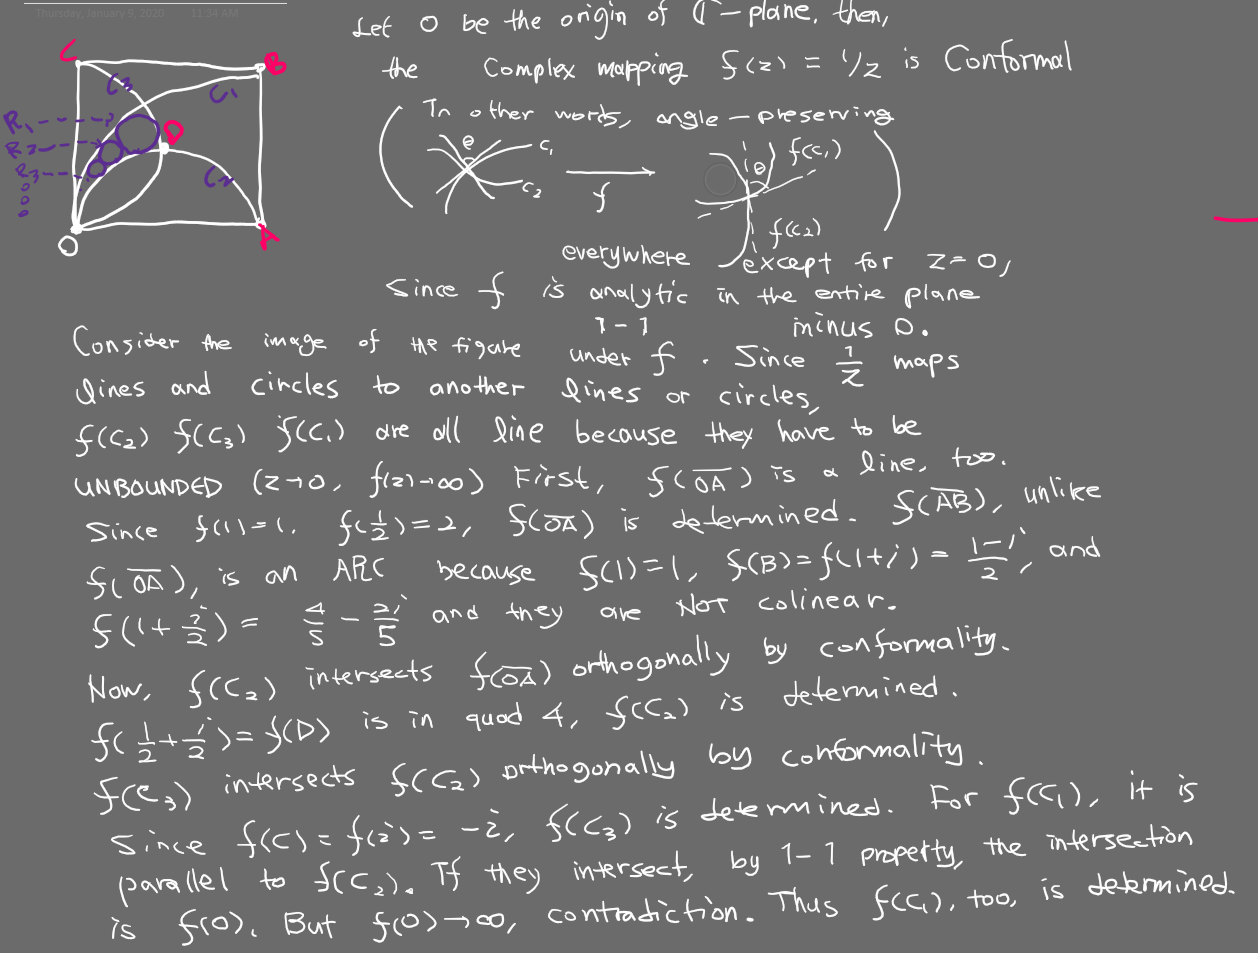 Thursday, January 9, 2020 11:34 AM
Let O be the origin of ℂ-plane. then,
the Complex mapping f(z) = 1/z is Conformal
(In other words, angle-preserving
θ C₁ C₂ f θ f(C₁) f(C₂) )
everywhere except for z=0,
Since f is analytic in the entire plane
1-1 minus 0.
C B C₃ C₁ R₁ R₂ R₃ D C₂ O A
Consider the image of the figure under f. Since 1/z maps
lines and circles to another lines or circles,
f(C₂) f(C₃) f(C₁) are all line because they have to be
UNBOUNDED (z→0, f(z)→∞) First, f(OA) is a line, too.
Since f(1)=1, f(1/2)=2, f(OA) is determined. f(AB), unlike
f(OA), is an ARC because f(1)=1, f(B)=f(1+i)= (1-i)/2, and
f(1+i/2) = 4/5 - 2i/5 and they are NOT colinear.
Now, f(C₂) intersects f(OA) orthogonally by conformality.
f(1/2+i/2)=f(D) is in quad 4, f(C₂) is determined.
f(C₃) intersects f(C₂) orthogonally by conformality.
Since f(C)=f(i)= -i, f(C₃) is determined. For f(C₁), it is
parallel to f(C₂). If they intersect, by 1-1 property, the intersection
is f(0). But f(0)→∞, contradiction. Thus f(C₁), too, is determined.